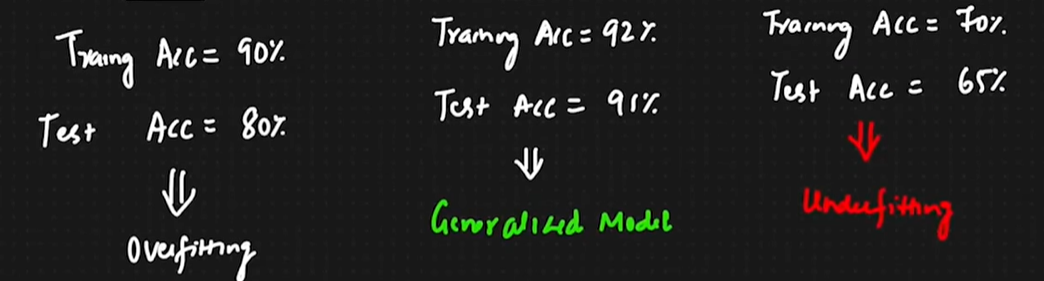 Traing Acc = 90%
Test Acc = 80%
⇓
Overfitting
Training Acc = 92%
Test Acc = 91%
⇓
Generalized Model
Training Acc = 70%
Test Acc = 65%
⇓
Underfitting